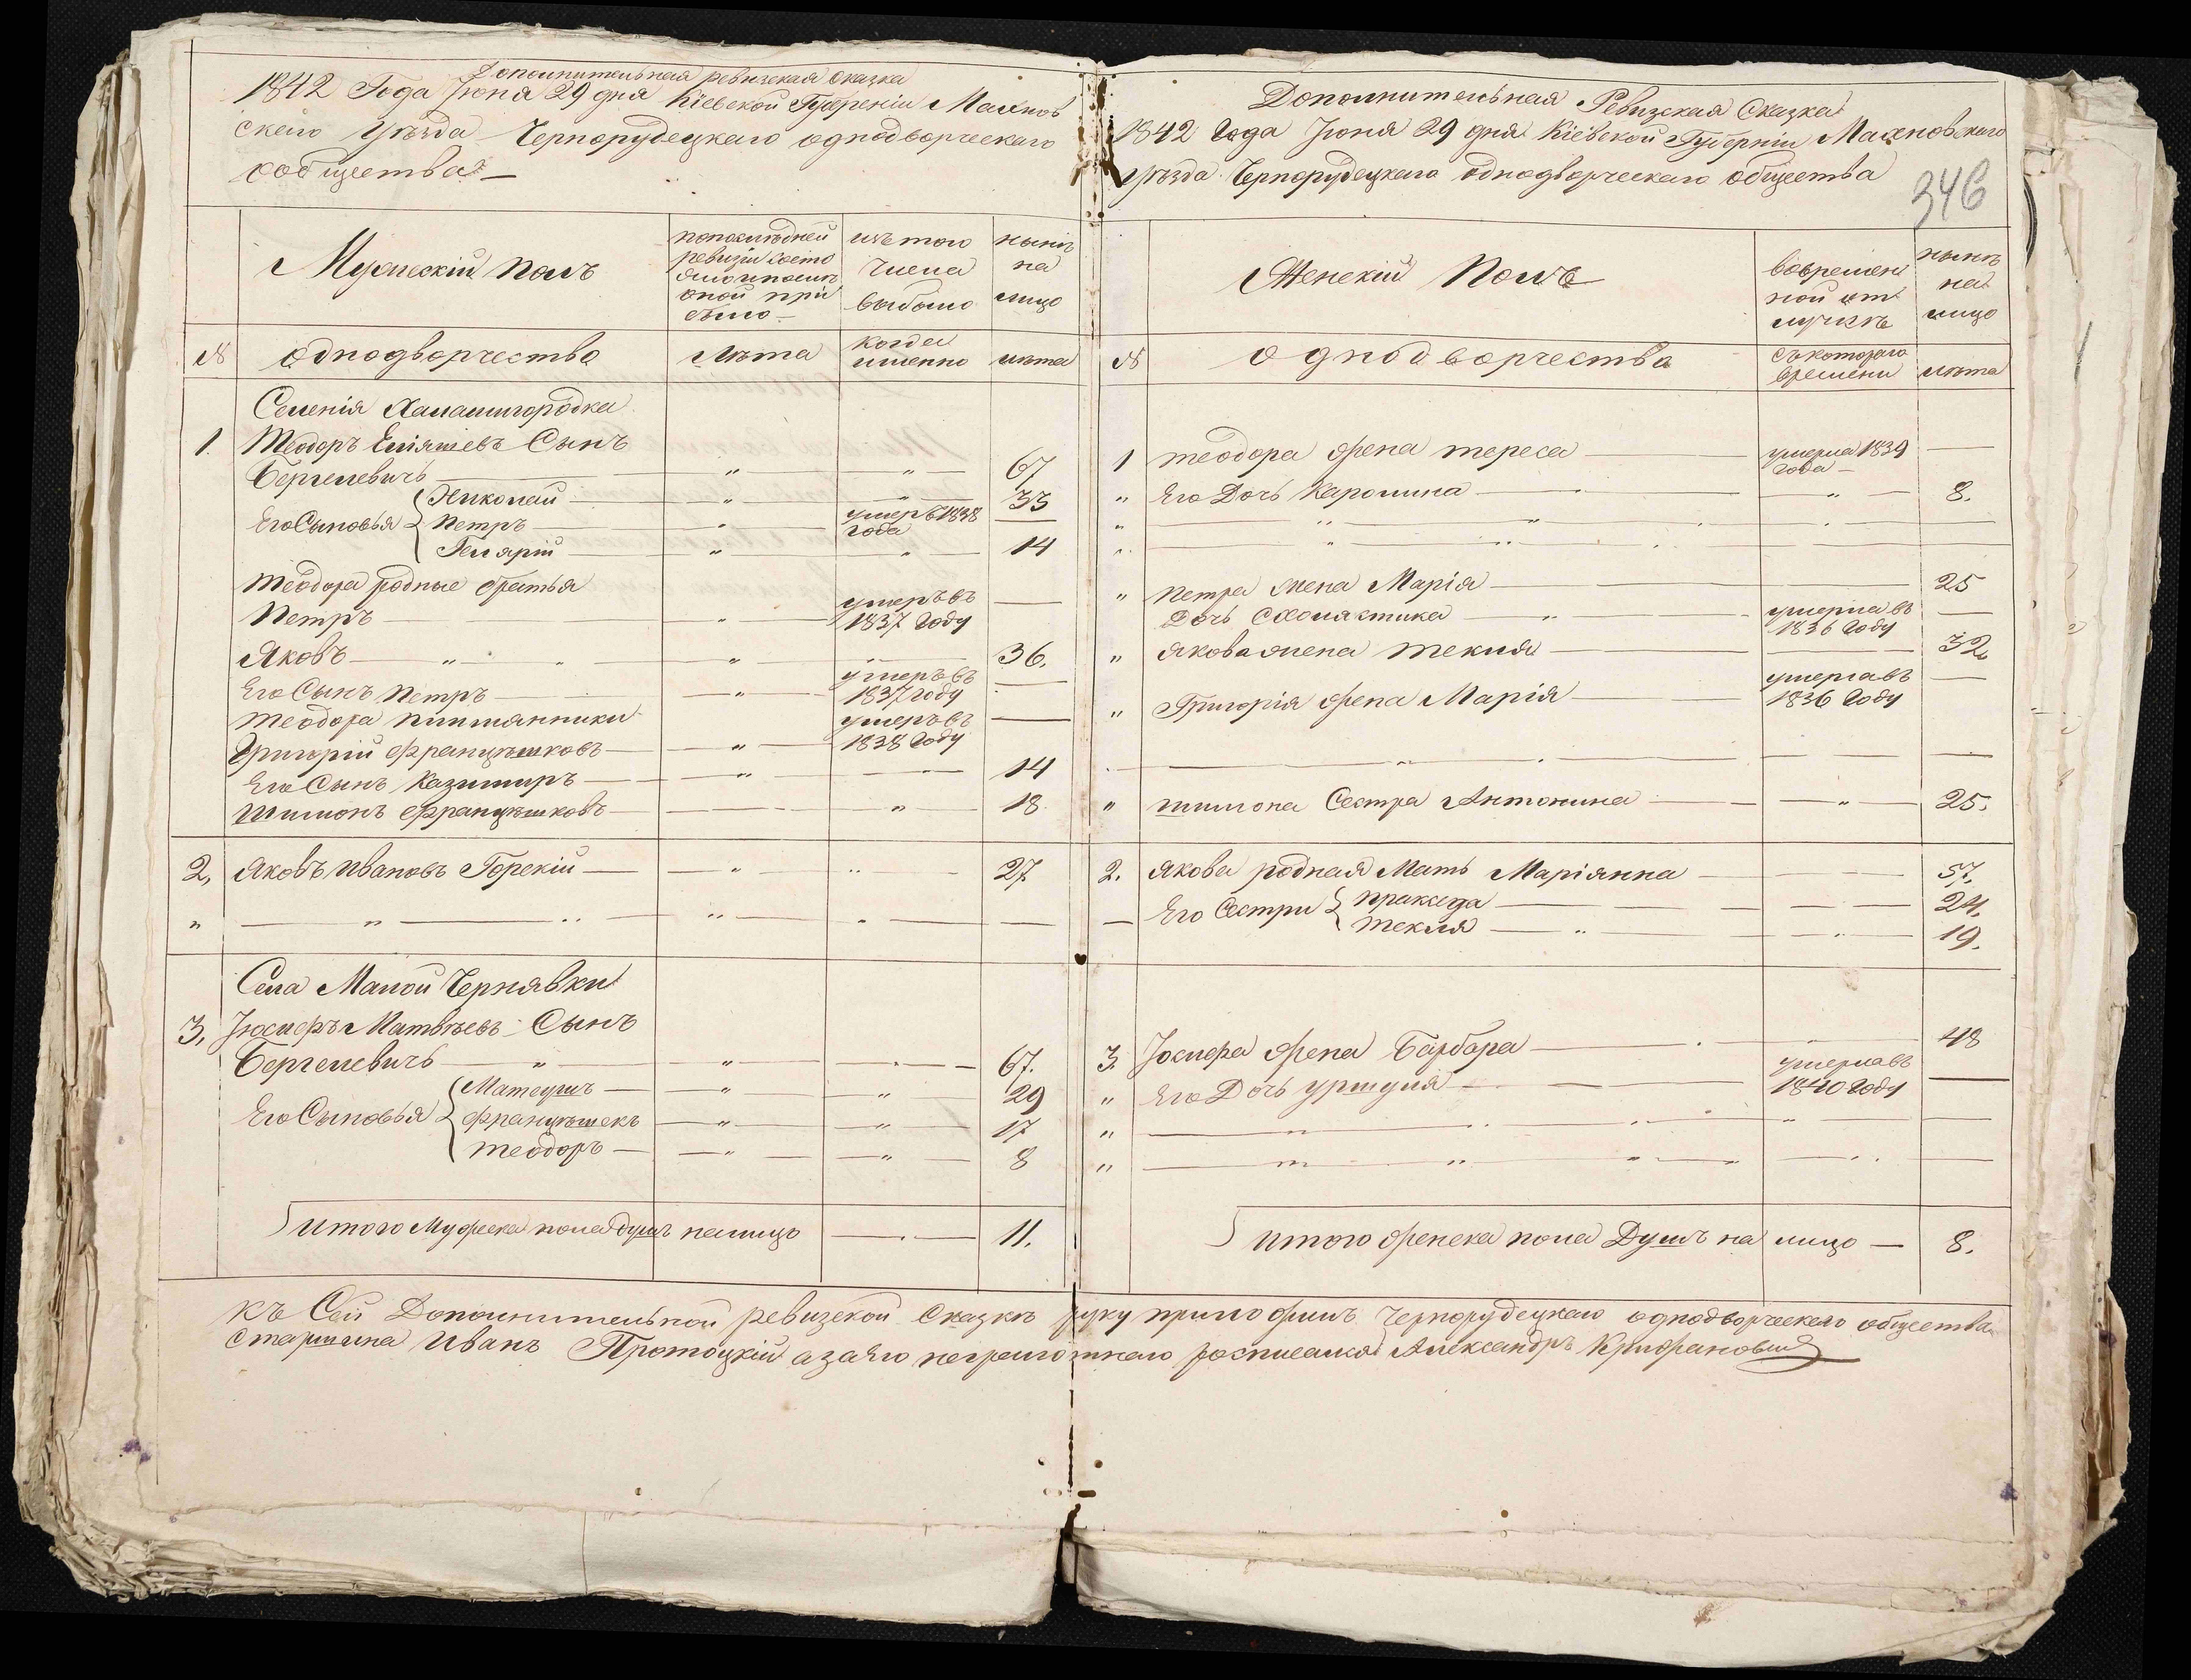 Дополнительная ревизская сказка
1842 Года Іюня 29 дня Кіевской Губерніи Махнов
скаго уѣзда Чернорудецкаго однодворческаго
сообщества
Мужескій полъ
по послѣдней
ревизіи состо
яло и послѣ
оной при
было
изъ того
числа
выбыло
нынѣ
на
лицо
№
однодворчество
лѣта
когда
именно
лѣта
Селенія Халаимгородка
1. Теодоръ Еліяшевъ Сынъ
Бергелевичъ — " — " — 67
Его Сыновья
Николай — " — " — 33
Петръ — " — умеръ 1838 года —
Гилярій — " — " — 14
Теодора родные братья
Петръ — " — умеръ въ 1837 Году —
Яковъ — " — " — 36.
Его Сынъ Петръ — " — умеръ въ 1837 году —
Теодора племянники
Григорій Францѣшковъ — " — умеръ въ 1838 Году —
Его Сынъ Казимиръ — " — 14
Шимонъ Францѣшковъ — " — 18
2, Яковъ Ивановъ Горскій — " — 27
Села Малой Чернявки
3, Іосифъ Матвѣевъ Сынъ
Бергелевичъ — " — " — 67.
Его Сыновья
Матеушъ — " — " — 29
Францѣшекъ — " — " — 17
Теодоръ — " — " — 8
Итого Мужеска пола душъ налицо — 11.
Дополнительная Ревизская Сказка
1842 Года Іюня 29 дня Кіевской Губерніи Махновскаго
уѣзда Чернорудецкаго однодворческаго общества
346
Женскій Полъ
во времен
ной от
лучкѣ
нынѣ
на
лицо
№
однодворчества
съ котораго
времени
лѣта
1 Теодора жена Тереса — умерла 1839 года —
" Его Дочь Каролина — " — 8.
" Петра жена Марія — 25
Дочь Схолястика — умерла въ 1836 Году —
" Якова жена Текля — 32
" Григорія жена Марія — умерла въ 1836 Году —
" Шимона Сестра Антонина — " — 25.
2. Якова родная Мать Маріянна — 57.
Его Сестри
Праксeда — 24.
Текля — " — 19.
3. Іосифа жена Барбара — 48
" Его Дочь Уршуля — умерла въ 1840 Году —
Итого женска пола Душъ на лицо — 8.
Къ Сей Дополнительной ревизской Сказкѣ руку приложилъ Чернорудецкаго однодворческаго общества
Старшина Иванъ Протоцкій а за его неграмотнаго росписался Александръ